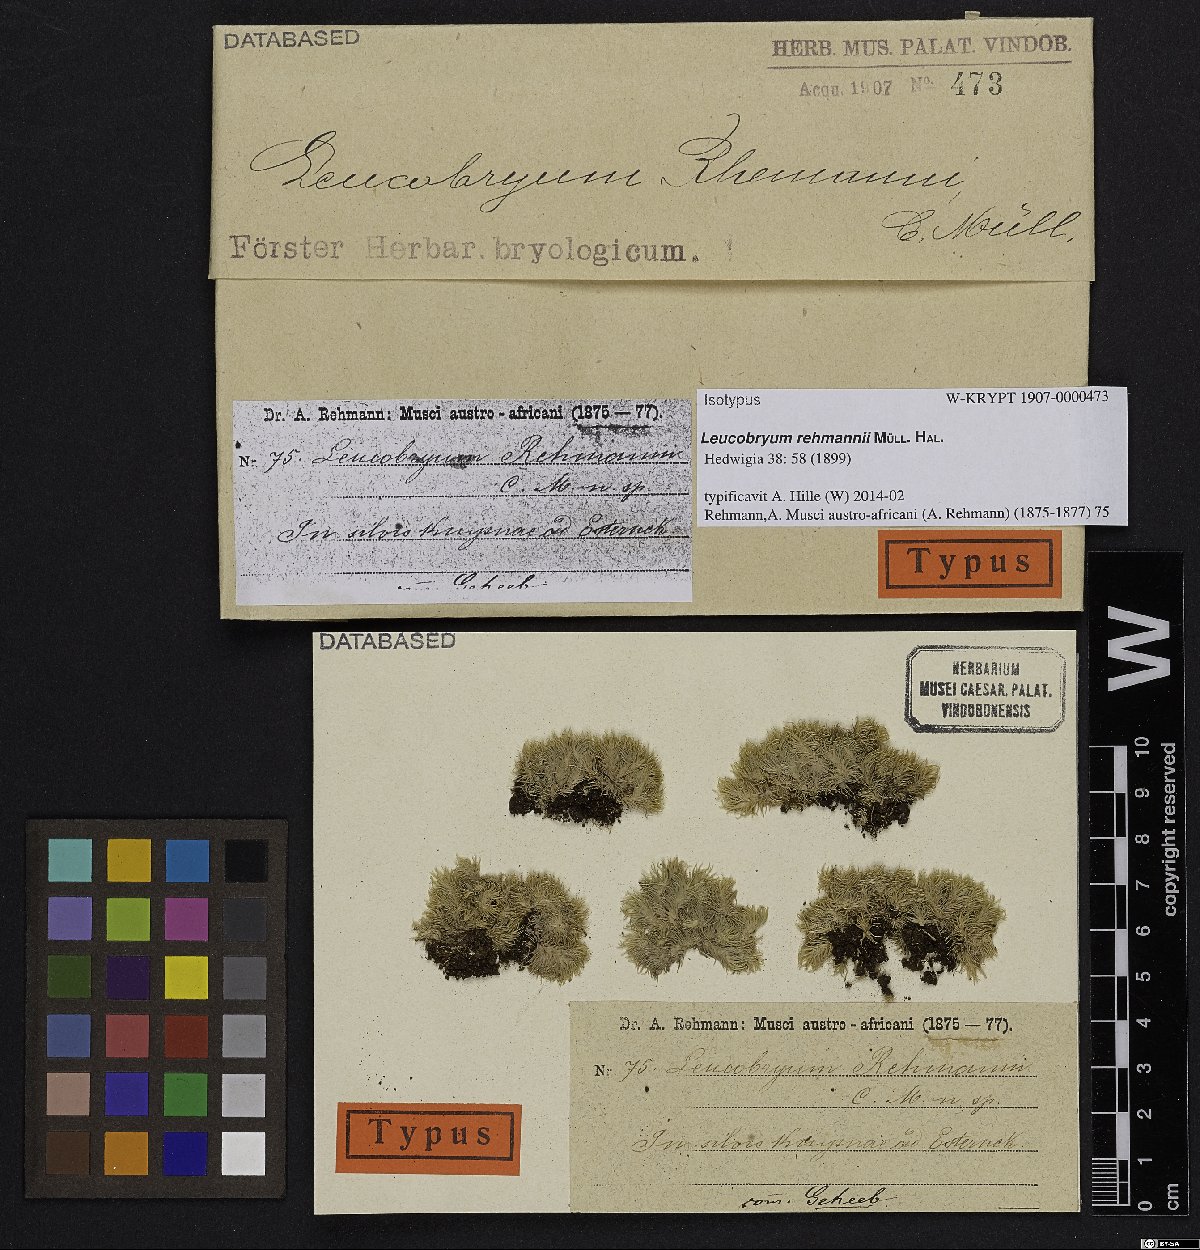 DATABASED
HERB. MUS. PALAT. VINDOB.
Acqu. 1907 No. 473
Leucobryum Rhemanni,
C. Müll.
Förster Herbar. bryologicum.
Dr. A. Rehmann: Musci austro-africani (1875—77).
Nr. 75. Leucobryum Rehmanni
C. M. n. sp.
In silvis Knysnae ad Esternek
Geheeb
Isotypus W-KRYPT 1907-0000473
Leucobryum rehmannii MÜLL. HAL.
Hedwigia 38: 58 (1899)
typificavit A. Hille (W) 2014-02
Rehmann,A. Musci austro-africani (A. Rehmann) (1875-1877) 75
Typus
DATABASED
HERBARIUM
MUSEI CAESAR. PALAT.
VINDOBONENSIS
Dr. A. Rehmann: Musci austro-africani (1875—77).
Nr. 75. Leucobryum Rehmanni
C. M. n. sp.
In silvis Knysnae ad Esternek
com. Geheeb
Typus
W
0 1 2 3 4 5 6 7 8 9 10
cm
copyright reserved
BY-SA